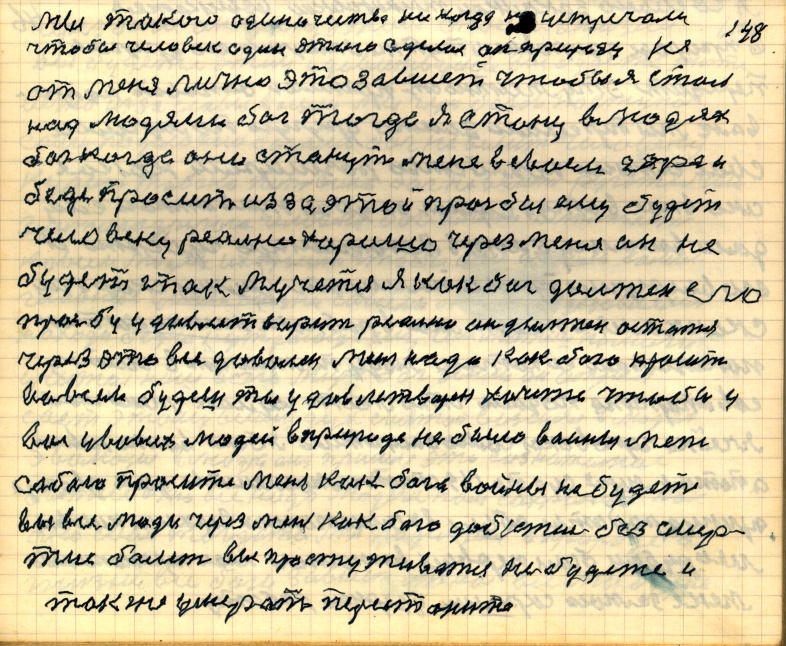 мы такого одиночества никогда не устречали 148
чтобы человек один этого сделал
от меня лично это зависит чтобы я стал
над людями бог тогда я стану в людях
бог когда они станут мене в своем
беде просить из за этой прозбы ему будет
человеку реально хорошо через меня он не
будет так мучется я как бог должен его
прозбу удовлетварит реально он должен остатся
через это все доволен мен надо как бога просит
во всем будеш ты удовлетварен хочите чтобы у
вас у вових людей в природе не было войны мен
самого просите мене как бога войны не будет
вы все люди через мен как бога добетеся без смер
тие болет вы простуживатся не будете и
так же умерать перестаните